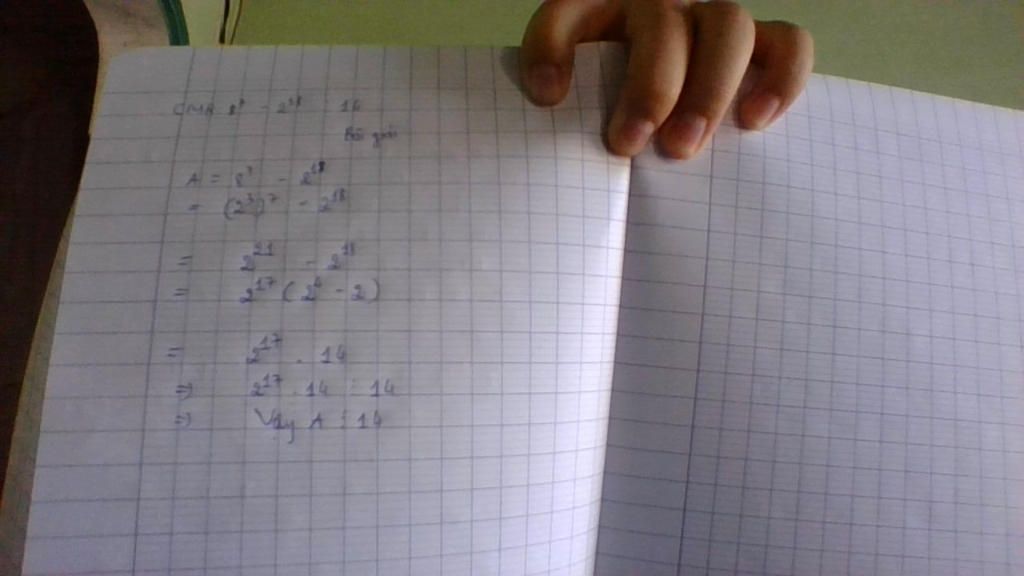 CMR 8⁷ - 2¹⁸ ⋮ 14
Bài giải
A = 8⁷ - 2¹⁸
= (2³)⁷ - 2¹⁸
= 2²¹ - 2¹⁸
= 2¹⁷ (2⁴ - 2)
= 2¹⁷ . 14
⇒ 2¹⁷ . 14 ⋮ 14
⇒ Vậy A ⋮ 14